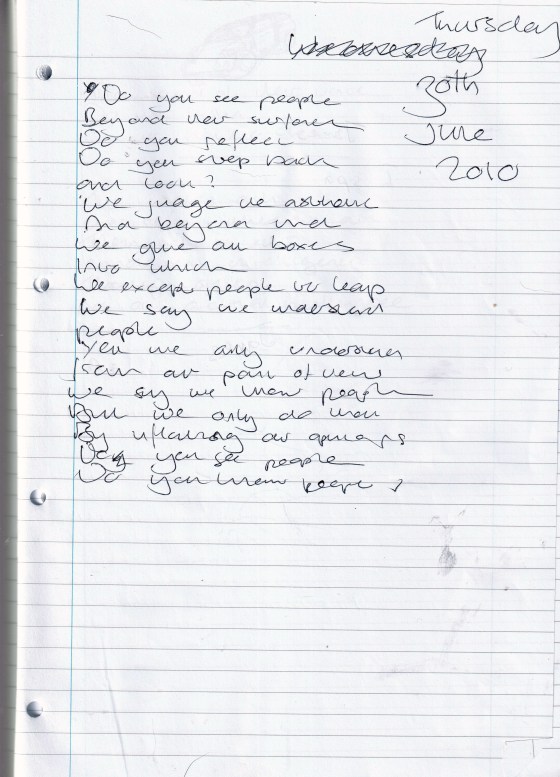 Thursday
30th
June
2010
Do you see people
Beyond
Do you reflect
Do you step back
and look?
We judge the
And beyond that
We give out boxes
Into which
We except people to leap
We say we understand
people
Yet we only understand
from our point of view
We say we know people
But we only do that
By our opinions
Do you see people
Do you know people?